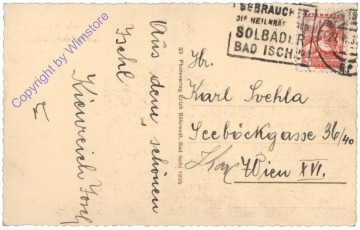 Copyright by Wimstore
Aus dem schönen
Ischl
Kienreich Josef
3D Photoverlag Erich Bährendt, Bad Ischl 1935.
GEBRAUCHT
DIE HEILKRÄFT
SOLBÄDER
BAD ISCHL
ÖSTERREICH
24
Hr.
Karl Svehla
Seeböckgasse 36/40
Wien XVI.